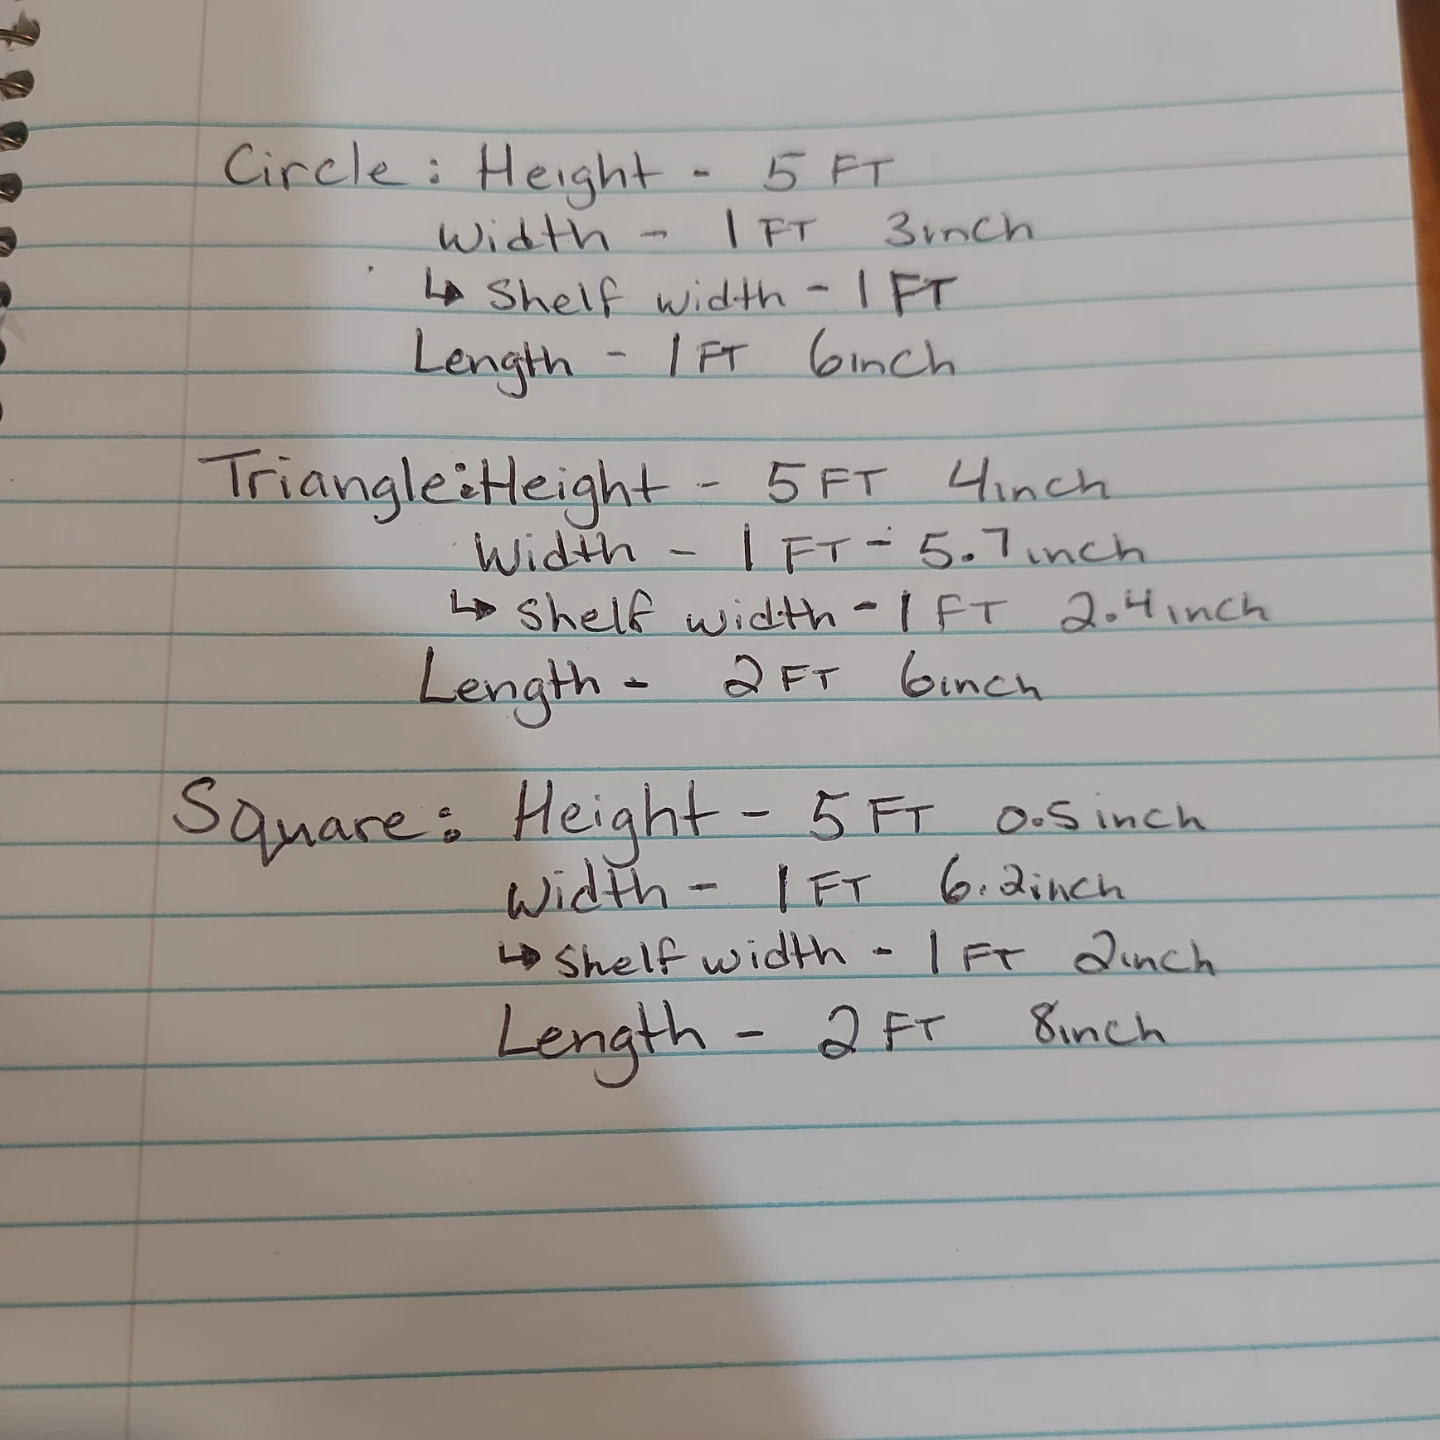 Circle: Height - 5 FT
Width - 1 FT 3inch
↳ Shelf width - 1 FT
Length - 1 FT 6inch
Triangle: Height - 5 FT 4inch
Width - 1 FT - 5.7inch
↳ Shelf width - 1 FT 2.4inch
Length - 2 FT 6inch
Square: Height - 5 FT 0.5inch
Width - 1 FT 6.2inch
↳ Shelf width - 1 FT 2inch
Length - 2 FT 8inch